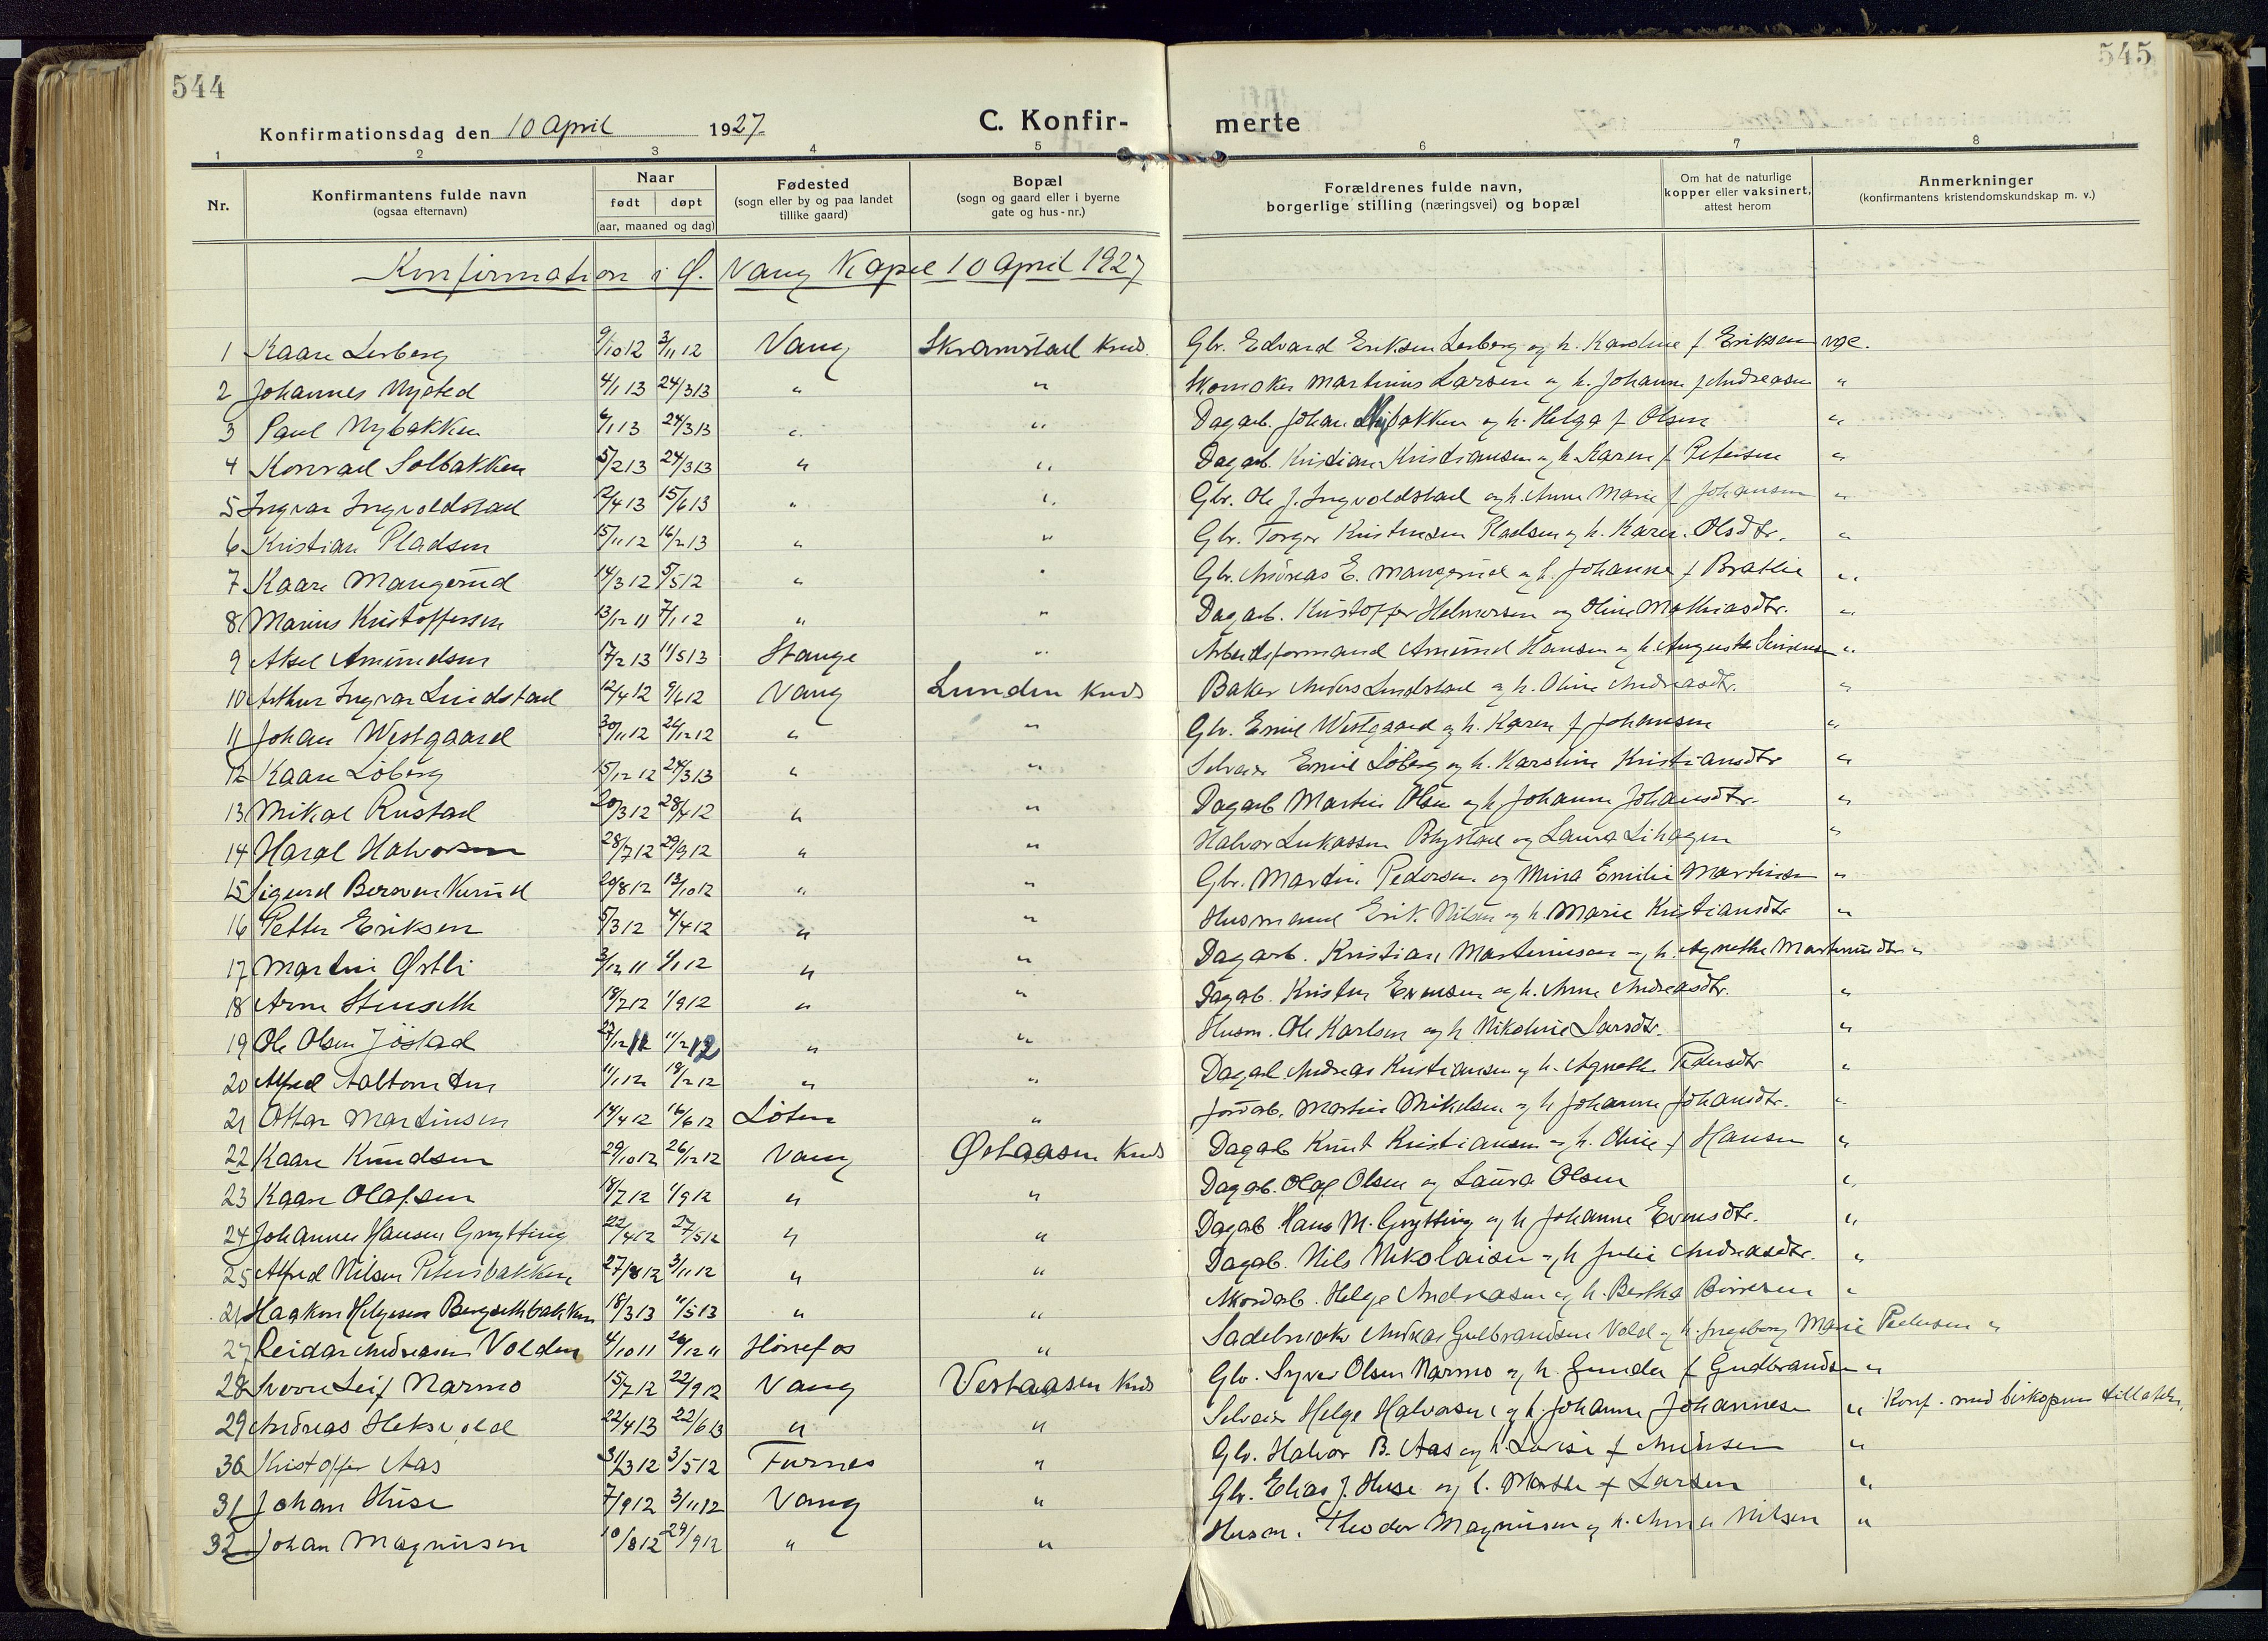 544
545
Konfirmationsdag den 10 April 1927
C. Konfir- merte
1 2 3 4 5 6 7 8
Nr.
Konfirmantens fulde navn
(ogsaa efternavn)
Naar
født døpt
(aar, maaned og dag)
Fødested
(sogn eller by og paa landet
tillike gaard)
Bopæl
(sogn og gaard eller i byerne
gate og hus-nr.)
Forældrenes fulde navn,
borgerlige stilling (næringsvei) og bopæl
Om hat de naturlige
kopper eller vaksinert,
attest herom
Anmerkninger
(konfirmantens kristendomskundskap m. v.)
Konfirmation i Ø. Vang Kapel 10 April 1927
1 Kaare Lerberg 9/10 12 3/11 12 Vang Skramstad Kreds. Gbr. Edvard Eriksen Lerberg og h. Karoline f Eriksen vac.
2 Johannes Nysted 4/1 13 24/3 13 " " Skomaker Martinius Larsen og h. Johanne f Andreasen "
3 Paul Nybakken 6/1 13 24/3 13 " " Dagarb. Johan Nybakken og h. Helga f Olsen "
4 Konrad Solbakken 5/2 13 24/3 13 " " Dagarb. Kristian Kristiansen og h. Karen f Petersen "
5 Ingvar Ingvoldstad 2/4 13 15/6 13 " " Gbr. Ole J. Ingvoldstad og h. Anne Marie f Johansen "
6 Kristian Pladsen 15/11 12 16/2 13 " " Gbr. Torger Kristensen Pladsen og h. Karen Olsdtr. "
7 Kaare Mangerud 14/3 12 5/5 12 " " Gbr. Andreas E. Mangerud og h. Johanne f Bratlie "
8 Marius Kristoffersen 13/12 11 7/1 12 " " Dagarb. Kristoffer Helmersen og Oline Mathiasdtr. "
9 Aksel Amundsen 17/2 13 11/5 13 Stange " Arbeidsformand Amund Hansen og h. Augusta Simensen "
10 Arthur Ingvar Lindstad 12/4 12 9/6 12 Vang Lunden Kreds Baker Anders Lindstad og h. Oline Andreasdtr. "
11 Johan Westgaard 30/11 12 26/12 12 " " Gbr. Emil Westgaard og h. Karen f Johansen "
12 Kaare Löberg 15/12 12 24/3 13 " " Selveier Emil Löberg og h. Karoline Kristiansdtr "
13 Mikal Rustad 20/3 12 28/4 12 " " Dagarb Martin Olsen og h. Johanne Johansdtr. "
14 Haral Halvorsen 28/7 12 29/9 12 " " Halvor Lukassen Blystad og Laura Lihagen "
15 Sigurd Berven Verud 20/8 12 13/10 12 " " Gbr. Martin Pedersen og Mina Emilie Martinsen "
16 Petter Eriksen 5/3 12 4/4 12 " " Husmand Erik Nilsen og h. Marie Kristiansdtr "
17 Martin Østli 3/12 11 1/1 12 " " Dagarb. Kristian Martinusen og h. Agnethe Martinusdtr "
18 Arne Stenseth 18/7 12 1/9 12 " " Dagarb. Kristen Evensen og h. Anne Andreasdtr. "
19 Ole Olsen Jöstad 27/12 11 11/2 12 " " Husm. Ole Karlsen og h Nikoline Larsdtr. "
20 Alfred Aaltomten 11/1 12 18/2 12 " " Dagarb. Andreas Kristiansen og h. Agnethe Pedersdtr "
21 Ottar Martinsen 14/4 12 16/6 12 Löten " Jordarb. Martin Mikelsen og h Johanne Johansdtr. "
22 Kaare Knudsen 29/10 12 26/12 12 Vang Østaasen Kreds Dagarb Knut Kristiansen og h. Oline f Hansen "
23 Kaare Olafsen 18/7 12 1/9 12 " " Dagarb. Olaf Olsen og Laura Olsen "
24 Johannes Hansen Grytting 22/4 12 27/5 12 " " Dagarb Hans M. Grytting og h Johanne Evensdtr. "
25 Alfred Nilsen Petersbakken 27/8 12 3/11 12 " " Dagarb. Nils Nikolaisen og h Julie Andreasdtr. "
26 Haakon Helgesen Bergsethbakken 18/3 13 11/5 13 " " Akordarb. Helge Andreasen og h. Bertha Börresen "
27 Reidar Andreasen Volden 4/10 11 26/12 11 Hönefos " Sadelmaker Andreas Gulbrandsen Vold og h. Ingeborg Marie Pedersen "
28 Sverre Leif Narmo 15/7 12 22/9 12 Vang Vestaasen Kreds Gbr. Syver Olsen Narmo og h. Gunda f Gudbrandsen "
29 Andreas Heksvold 22/4 13 22/6 13 " " Selveier Helge Halvorsen og h. Johanne Johannesen " Konf. med biskopens tillatelse,
30 Kristoffer Aas 31/3 12 3/5 12 Furnes " Gbr. Halvor B. Aas og h. Lovise f Amundsen "
31 Johan Huse 7/9 12 3/11 12 Vang " Gbr. Elias J. Huse og h. Marthe f Larsen "
32 Johan Magnussen 10/8 12 29/9 12 " " Husm. Theodor Magnusen og h. Anna Nilsen "